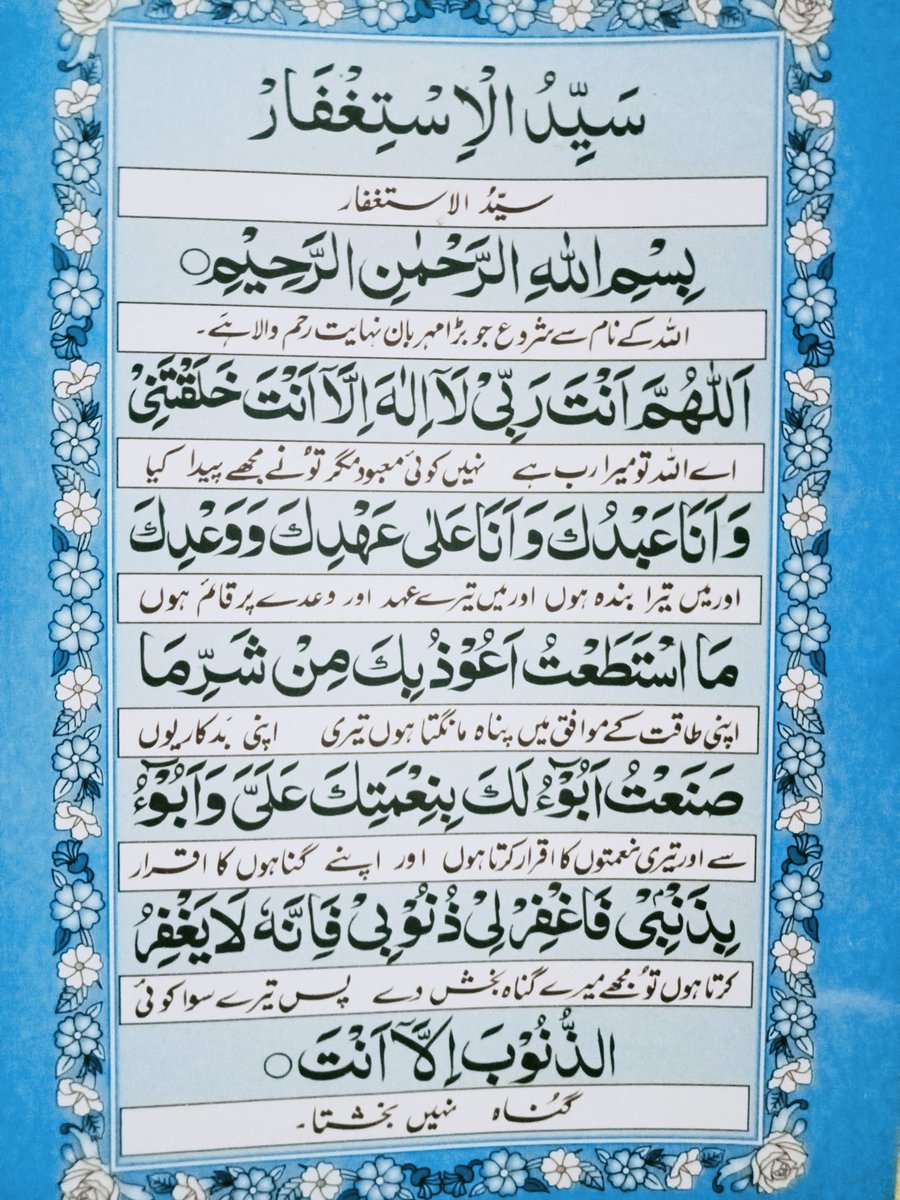 سَيِّدُ الْاِسْتِغْفَارْ
سیّدُ الاستغفار
بِسْمِ اللّٰهِ الرَّحْمٰنِ الرَّحِيْمِ○
اللہ کے نام سے شروع جو بڑا مہربان نہایت رحم والا ہَے۔
اَللّٰهُمَّ اَنْتَ رَبِّىْ لَآ اِلٰهَ اِلَّآ اَنْتَ خَلَقْتَنِىْ
اے اللہ تو میرا رب ہے نہیں کوئی معبود مگر توُ نے مجھے پیدا کیا
وَاَنَا عَبْدُكَ وَاَنَا عَلٰى عَهْدِكَ وَوَعْدِكَ
اور میں تیرا بندہ ہوں اور میں تیرے عہد اور وعدے پر قائم ہوں
مَا اسْتَطَعْتُ اَعُوْذُ بِكَ مِنْ شَرِّ مَا
اپنی طاقت کے موافق میں پناہ مانگتا ہوں تیری اپنی بَدکاریوں
صَنَعْتُ اَبُوْٓءُ لَكَ بِنِعْمَتِكَ عَلَىَّ وَاَبُوْٓءُ
سے اور تیری نعمتوں کا اقرار کرتا ہوں اور اپنے گناہوں کا اقرار
بِذَنْۢبِىْ فَاغْفِرْ لِىْ ذُنُوْبِىْ فَاِنَّهٗ لَا يَغْفِرُ
کرتا ہوں توُ مجھے میرے گناہ بخش دے پس تیرے سوا کوئی
الذُّنُوْبَ اِلَّآ اَنْتَ○
گنُاہ نہیں بخشتا۔